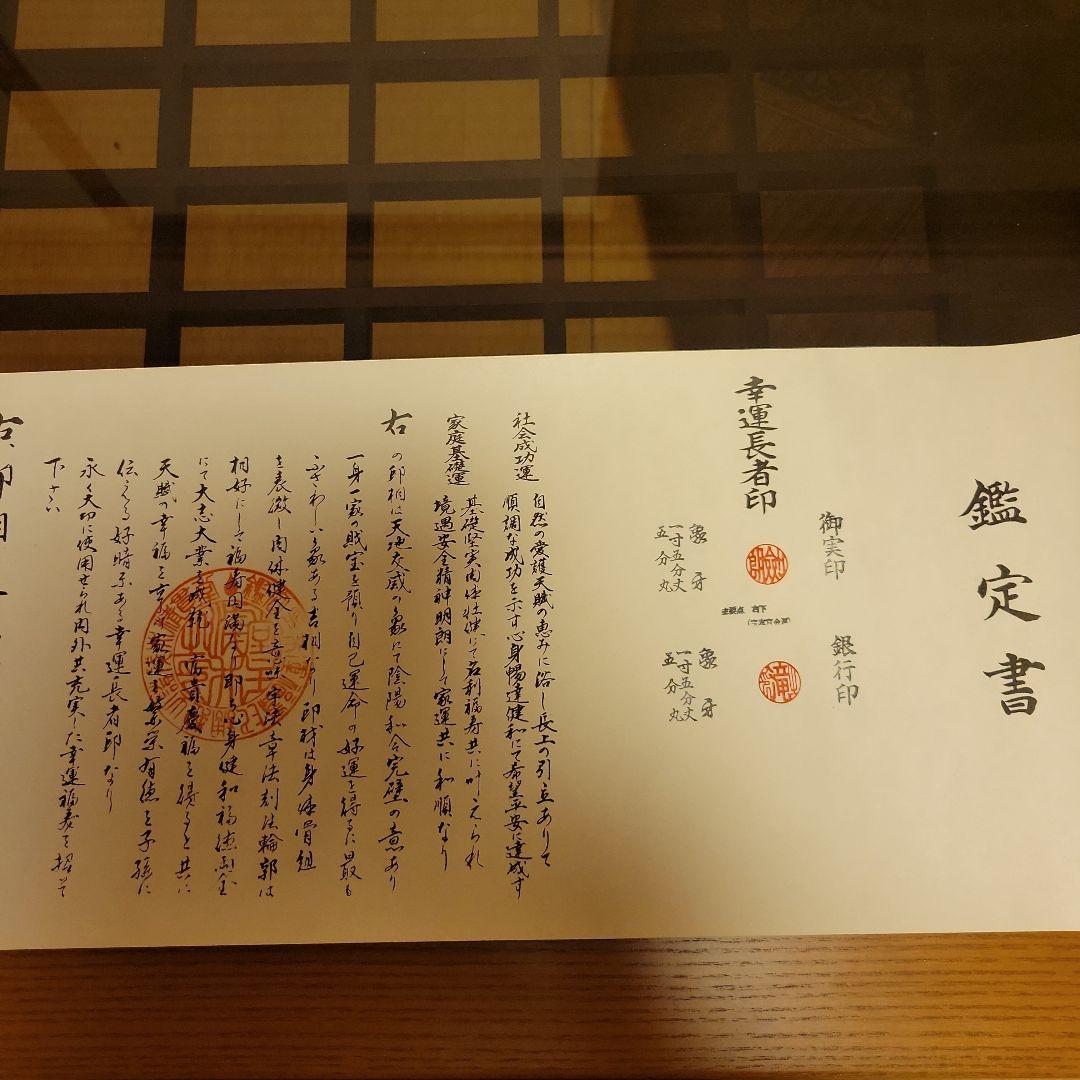 鑑定書
御実印
銀行印
幸運長者印
象牙
一寸五分丈
五分丸
象牙
一寸五分丈
五分丸
社会成功運
自然の愛護天賦の恵みに浴し長上の引立ありて
順調な成功を示す心身暢達健和にて希望平安に達成す
家庭基礎運
基礎堅実肉体壮健にて名利福寿共に叶えられ
境遇安全精神明朗にして家運共に和順なり
右の印相は天地交感の象にて陰陽和合完璧の意あり
一身一家の賊宝を預り自己運命の好運を得るに最も
ふさわしい象ある吉相なり印材は身体骨組
を表徴し肉体健全を意味字法章法刻法輪郭は
相好にして福寿円満なり即ち心身健和福徳
にて大志大業を成就し富貴慶福を得ると共に
天賦の幸福を享け家運を繁栄有徳を子孫に
伝える好暗示ある幸運長者印なり
永く大切に使用せられ内外共充実した幸運福寿を招いて
下さい